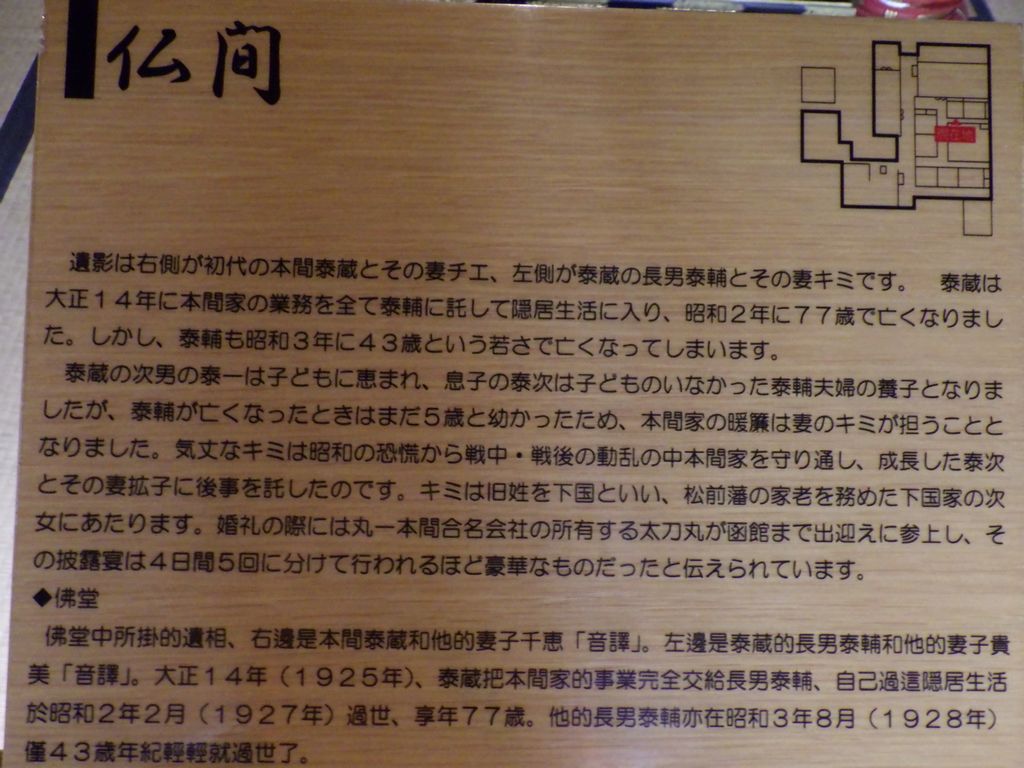 仏間
所在地
遺影は右側が初代の本間泰蔵とその妻チエ、左側が泰蔵の長男泰輔とその妻キミです。　泰蔵は
大正１４年に本間家の業務を全て泰輔に託して隠居生活に入り、昭和２年に７７歳で亡くなりまし
た。しかし、泰輔も昭和３年に４３歳という若さで亡くなってしまいます。
泰蔵の次男の泰一は子どもに恵まれ、息子の泰次は子どものいなかった泰輔夫婦の養子となりま
したが、泰輔が亡くなったときはまだ５歳と幼かったため、本間家の暖簾は妻のキミが担うことと
なりました。気丈なキミは昭和の恐慌から戦中・戦後の動乱の中本間家を守り通し、成長した泰次
とその妻拡子に後事を託したのです。キミは旧姓を下国といい、松前藩の家老を務めた下国家の次
女にあたります。婚礼の際には丸一本間合名会社の所有する太刀丸が函館まで出迎えに参上し、そ
の披露宴は４日間５回に分けて行われるほど豪華なものだったと伝えられています。
◆佛堂
佛堂中所掛的遺相、右邊是本間泰蔵和他的妻子千恵「音譯」。左邊是泰蔵的長男泰輔和他的妻子貴
美「音譯」。大正１４年（１９２５年）、泰蔵把本間家的事業完全交給長男泰輔、自己過這隠居生活
於昭和２年２月（１９２７年）過世、享年７７歳。他的長男泰輔亦在昭和３年８月（１９２８年）
僅４３歳年紀輕輕就過世了。